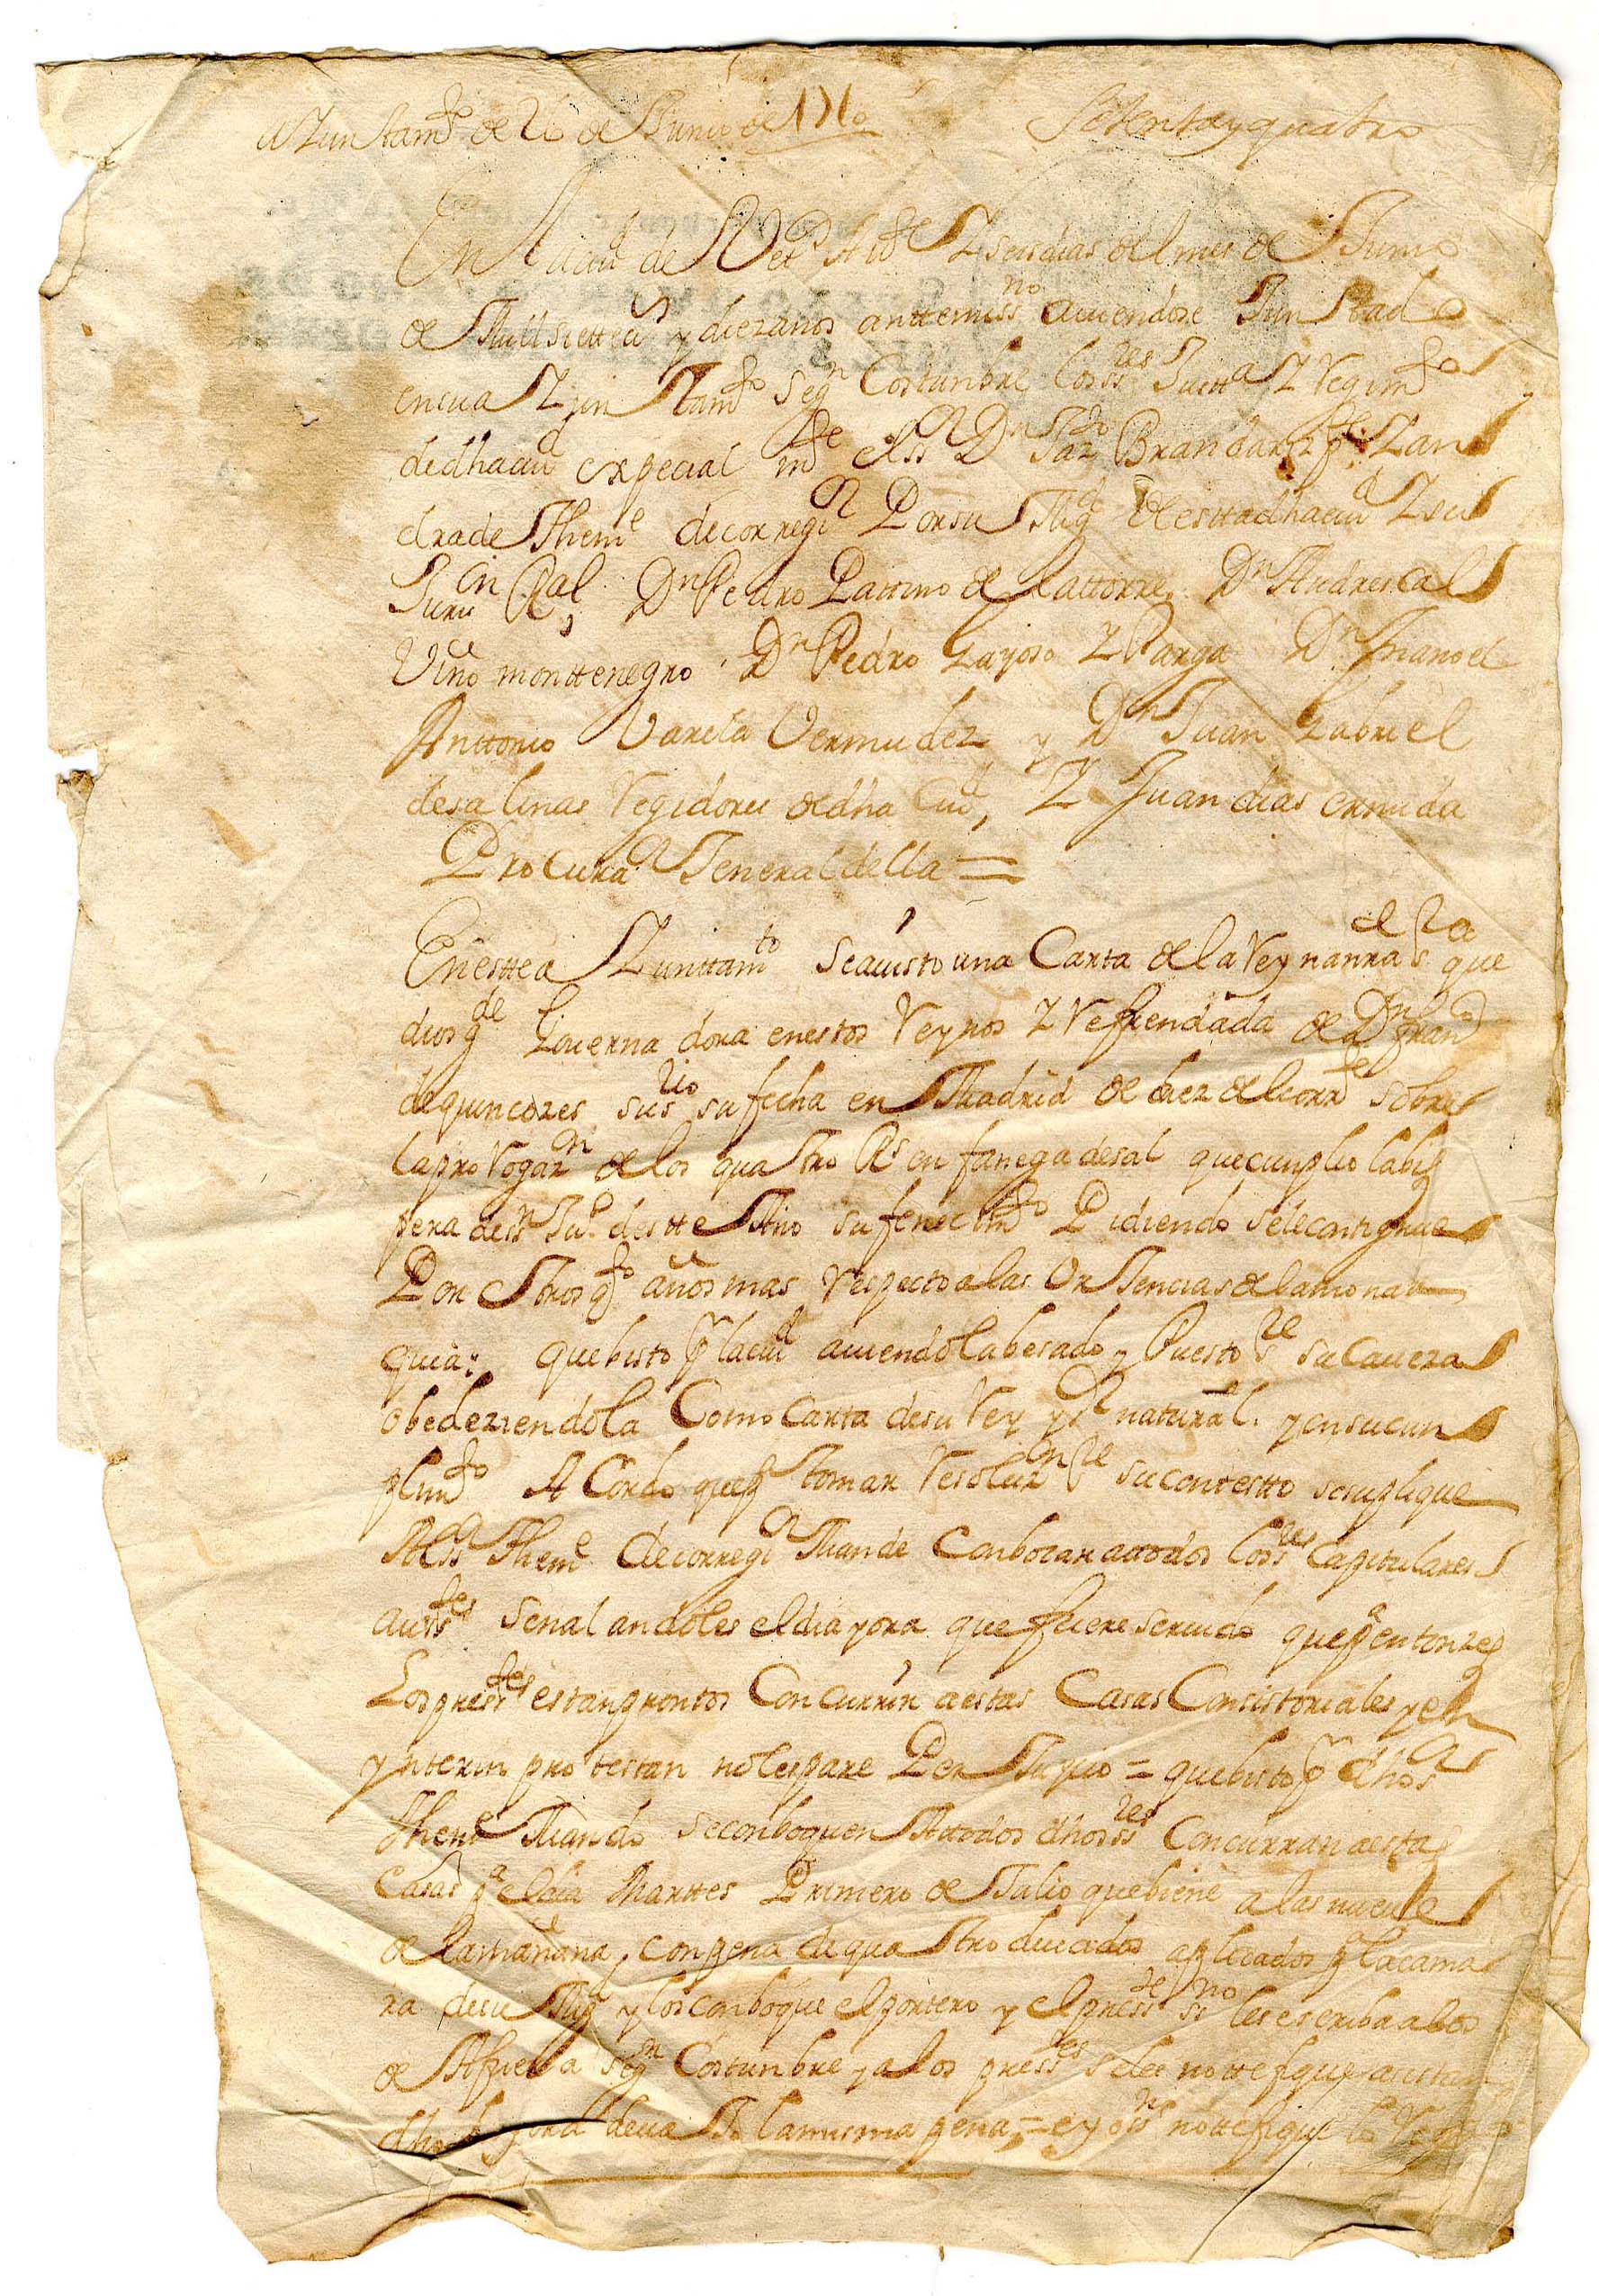 Ayuntamto de 26 de Junio de 1710 Setenta y quatro
En la ciud de Bettos A ve y seis dias del mes de Junio
de mill siettecos y diez anos anttemi ssno auiendose Junttado
en su Ayunttamto segn Costunbre los ssres Justta y Regimto
de dha ciud expecial mte el ssr Dn Brandariz y An
drade Theme de corregr Por su Magd de estta dha ciud y su
Jurisn Real, Dn Pedro Pattino de la ttorre, Dn Andres cal
Viño monttenegro, Dn Pedro Gayoso y Parga Dn Manoel
Anttonio Varela Vermudez y Dn Juan Gabriel
de salinas Regidores de dha Ciud, y Juan dias ermida
Procurar Jeneral della =
En estte Ayunttamto se a uisto una Carta de la Reyna nra sra que
dios gde Gouernadora en estos Reynos y Refrendada de Dn franco
de quincozes su ssrio su fecha en Madrid de diez del corrte sobre
la prorrogazn de los quattro Rs en fanega de sal que cunplio la bis
pera de sn Ju. de stte Año su fenecimto Pidiendo se le continue
Por ottros años mas respecto a las Urjencias de la monar
quia; que bisto pr la ciud auiendola besado y Puesto sre su caueza
obedeziendola Como carta de su Rey y sr natural. y en su cun
plimto Acordo que pa tomar resoluzn sre su contestto se suplique
Al ssr Theme de corregr Mande Conbocar a ttodos los sres capitulares
austes señalandoles el dia y ora que fuere seruido que pa entonzes
Los presstes estan prontos Concurrir a estas Casas Consistoriales y en
ynterin protestan no les pare Perjuyzio = que bisto pr dho sr
Theme Mando se conboquen A ttodos dhos ssres Concurran a estas
Casas pa el dia Marttes Primero de Julio que biene a las nueue
de la mañana, con pena de quattro ducados aplicados pa la cama
ra de su Magd y los conboque el portero y el presste ssno les escriba a los
de Afuera segn Costunbre y a los presstes se les nottefique asistan
dho dia y ora deuajo la misma pena, = e yo ssno nottefique